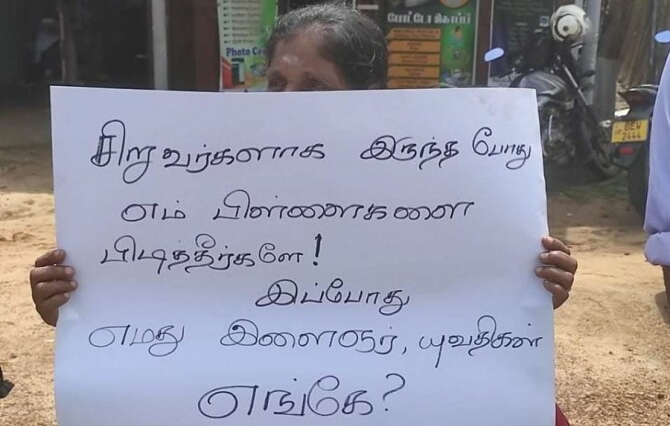 Photo Co
போட்டோ கொப்பி
சிறுவர்களாக இருந்த போது
எம் பிள்ளைகளை
பிடித்தீர்களே!
இப்போது
எமது இளைஞர், யுவதிகள்
எங்கே?
BEW
2444